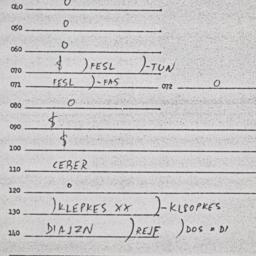 040 0
050 0
060 0
070 $ )FESL )-TUN
071 FESL )-FAS 072 0
080 0
090 $
100 $
110 CEBER
120 0
130 )KLEPKES XX )-KLSOPKES
140 DIAJZN )REJF )DOS = DI